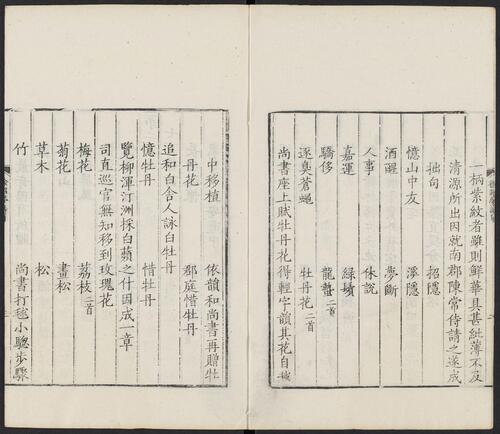 一柄紫紋者雖則鮮華具甚紕薄不及
清源所出因就南郡陳常侍請之遂成
拙句 招隱
憶山中友 溪隱
酒醒 夢斷
人事 休說
嘉運 綠鬢
驕侈 龍蟄二首
逐臭蒼蠅 牡丹花二首
尚書座上賦牡丹花得輕字韻其花自越
中移植 依韻和尚書再贈牡
丹花 郡庭惜牡丹
追和白舍人詠白牡丹
憶牡丹 惜牡丹
覽柳渾汀洲採白蘋之什因成一章
司直巡官無知移到玫瑰花
梅花 荔枝二首
菊花 畫松
草木 松
竹 尚書打毬小驄步驟